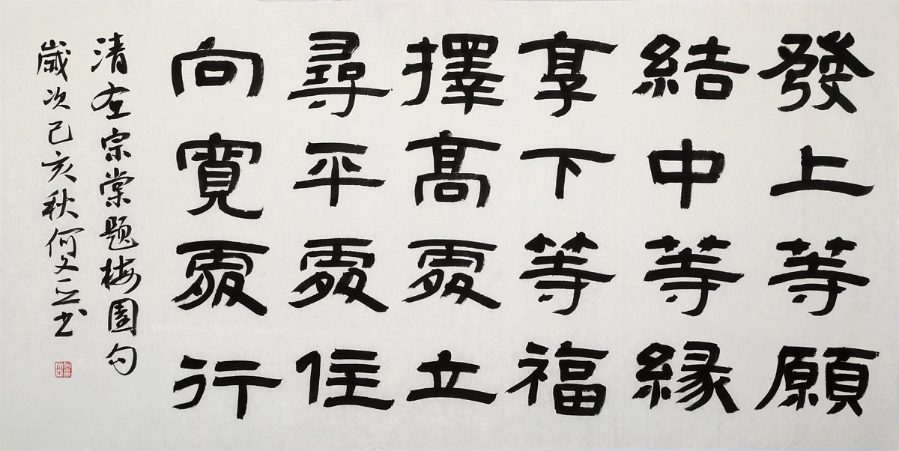 發上等願
結中等緣
享下等福
擇高處立
尋平處住
向寬處行
清左宗棠題梅園句
歲次己亥秋何文正书